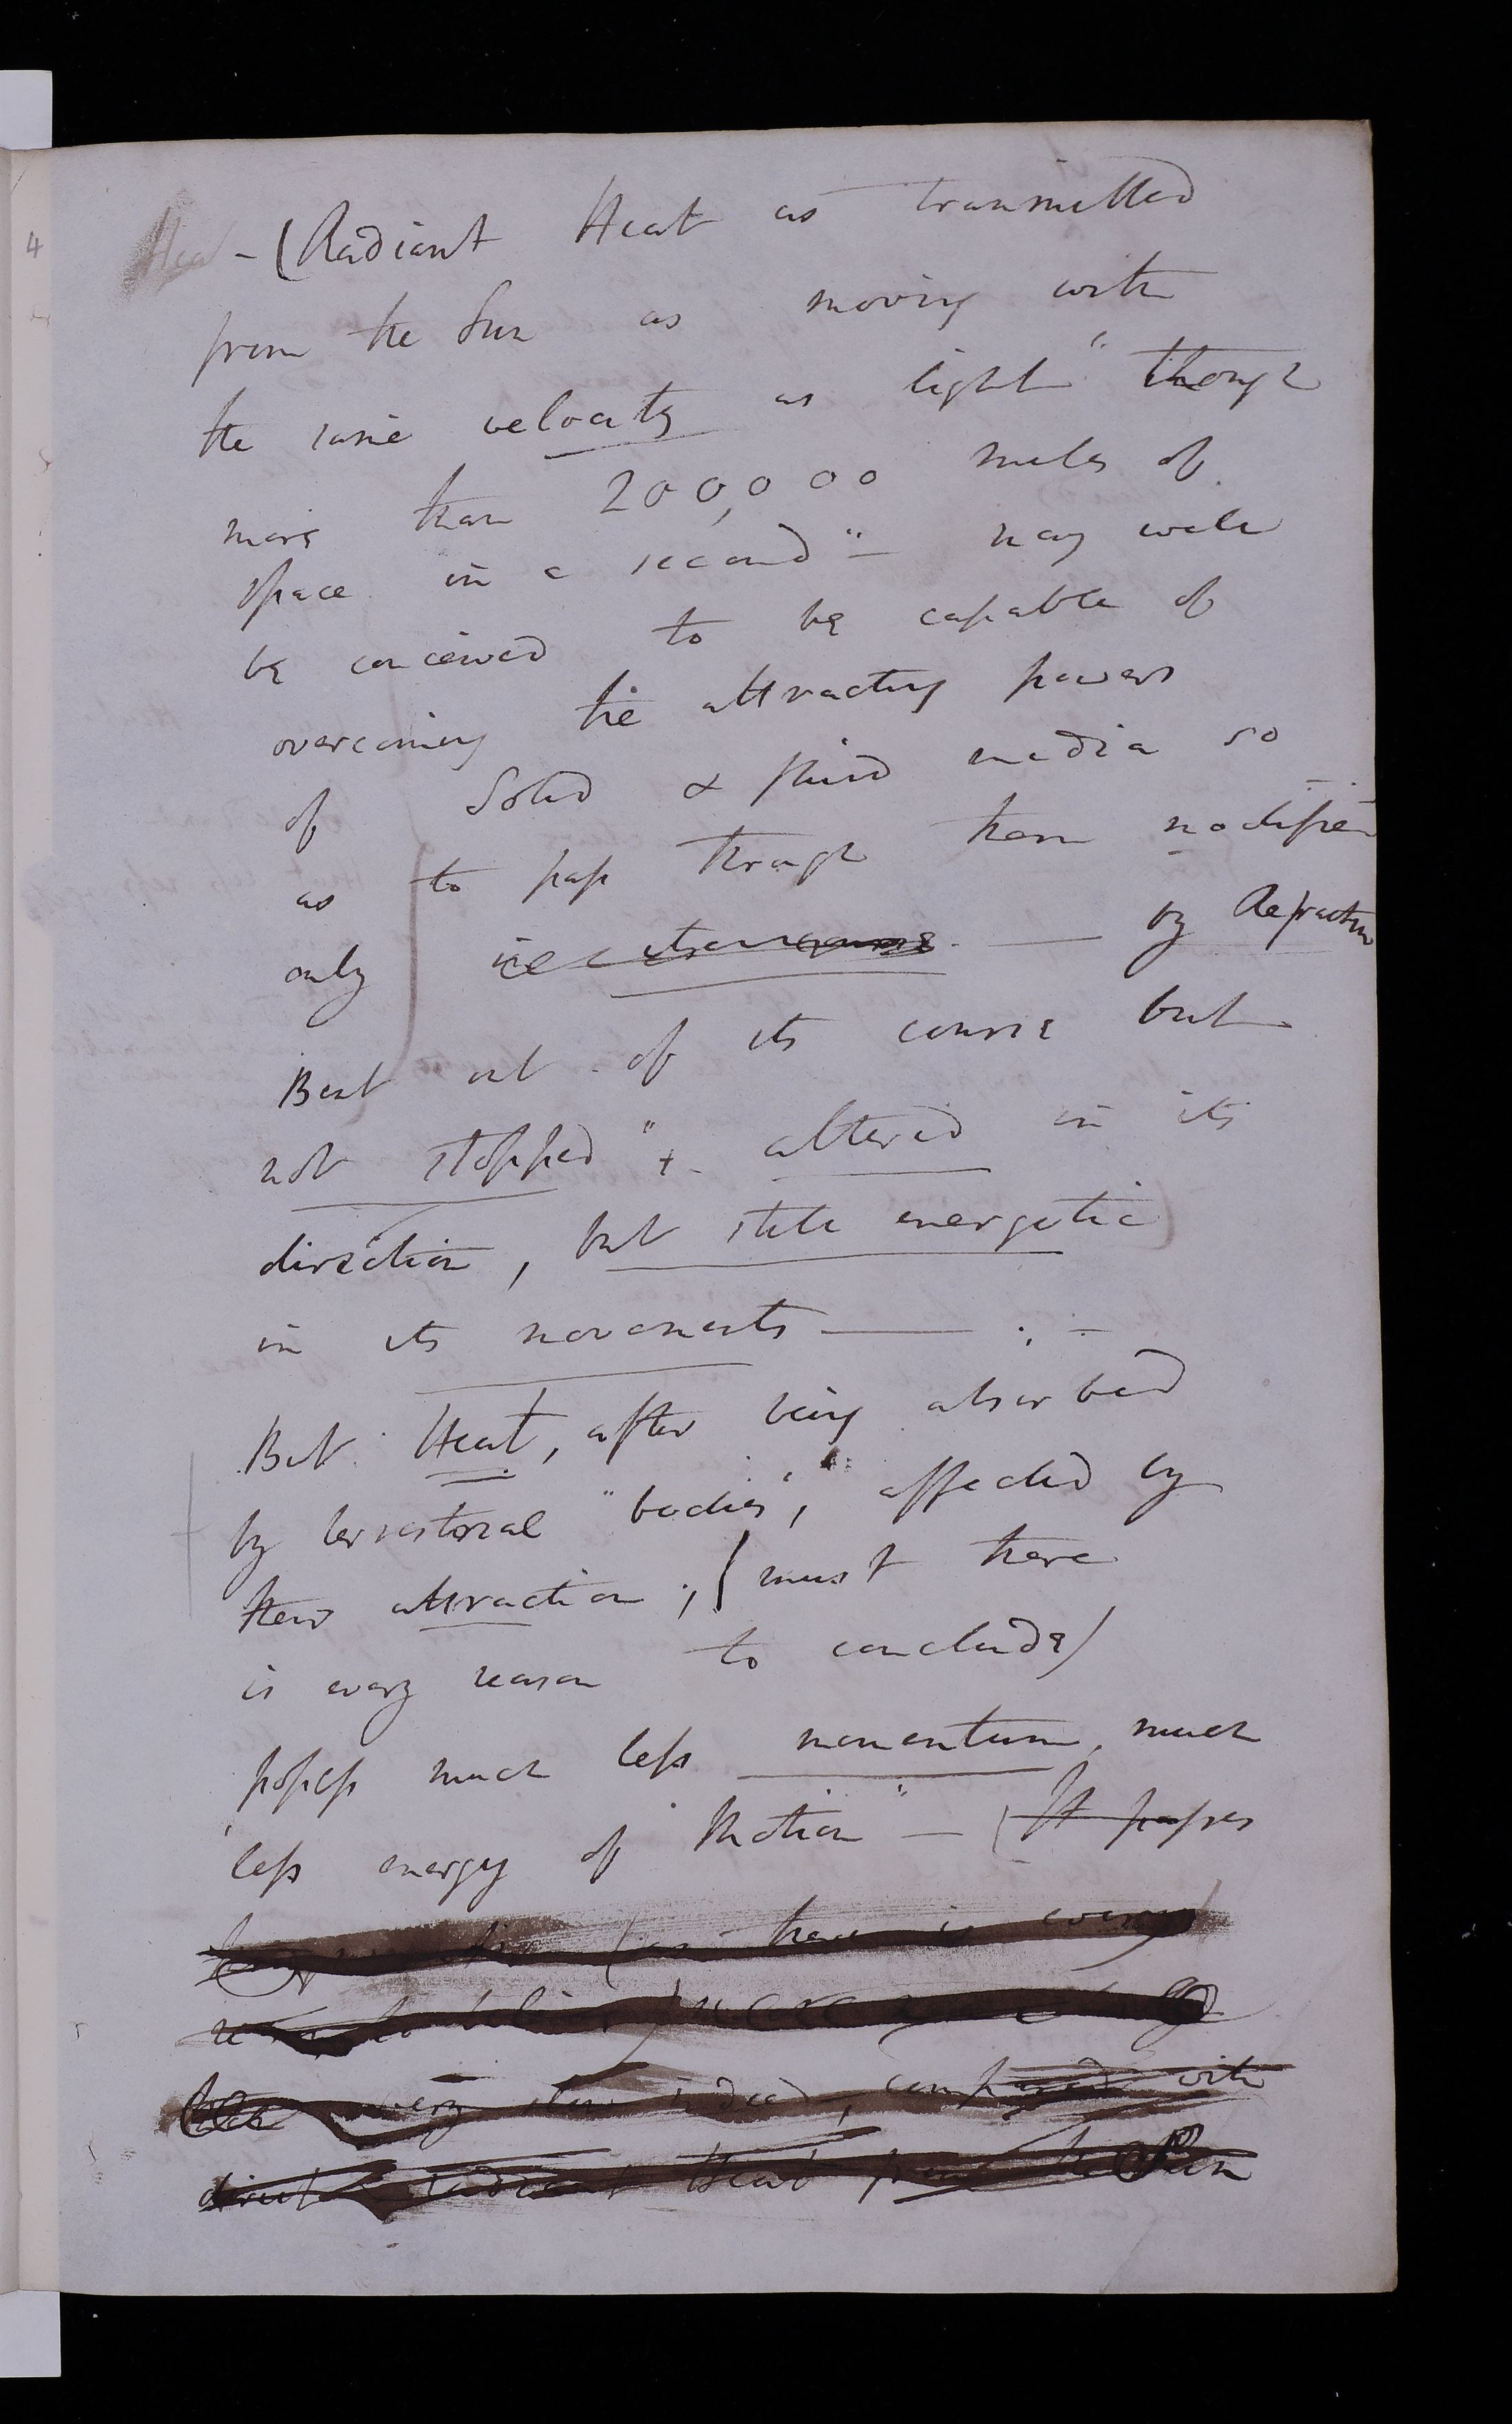 Heat - (Radiant Heat as transmitted
from the Sun as moving with
the same velocity as light" though
more than 200,000 miles of
space in a second" — may well
be conceived to be capable of
overcoming the attracting powers
of Solid & fluid media so
as to pass through them modified
only in its course — by Refraction
Bent out of its course but
not stopped" + altered in its
direction, but still energetic
in its movements — : -
But Heat, after being absorbed
by terrestrial "bodies", affected by
their attraction ; (must there
is every reason to conclude)
possess much less momentum, much
less energy of Motion" — (It passes
(as there is every
reason to believe)
very slow indeed, compared with
direct radiant Heat from the Sun
4